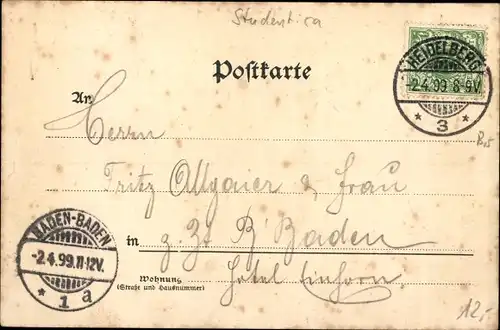 Studentica
Postkarte
HEIDELBERG
2.4.99. 8-9V.
* 3 *
An
Herrn
Fritz Allgaier & Frau
in z. Zt B'Baden
Wohnung
(Straße und Hausnummer)
Hotel Einhorn.
BADEN-BADEN
-2.4.99.11-12V.
* 1 a
12,-